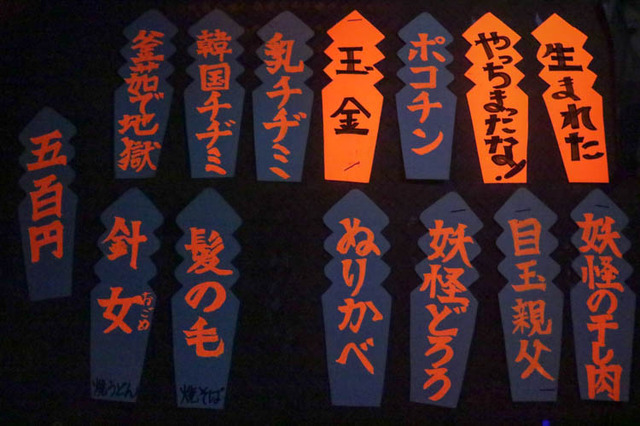 生まれた
やっちまったな!
ポコチン
玉金
乳チヂミ
韓国チヂミ
釜茹で地獄
妖怪の干し肉
目玉親父
妖怪どろろ
ぬりかべ
髪の毛
焼そば
針女
おごめ
焼うどん
五百円